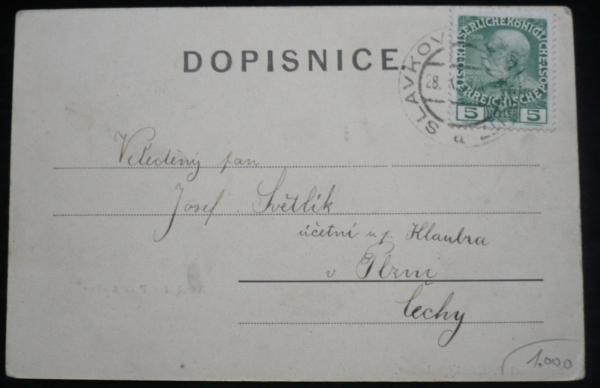 DOPISNICE.
SLAVKOV
28.
KAISERLICHE KÖNIGLICHE
ÖSTERREICHISCHE POST
5 HELLER 5
pan
Josef Světlík
účetní u p. Klaubra
v Plzni
Čechy
1.000